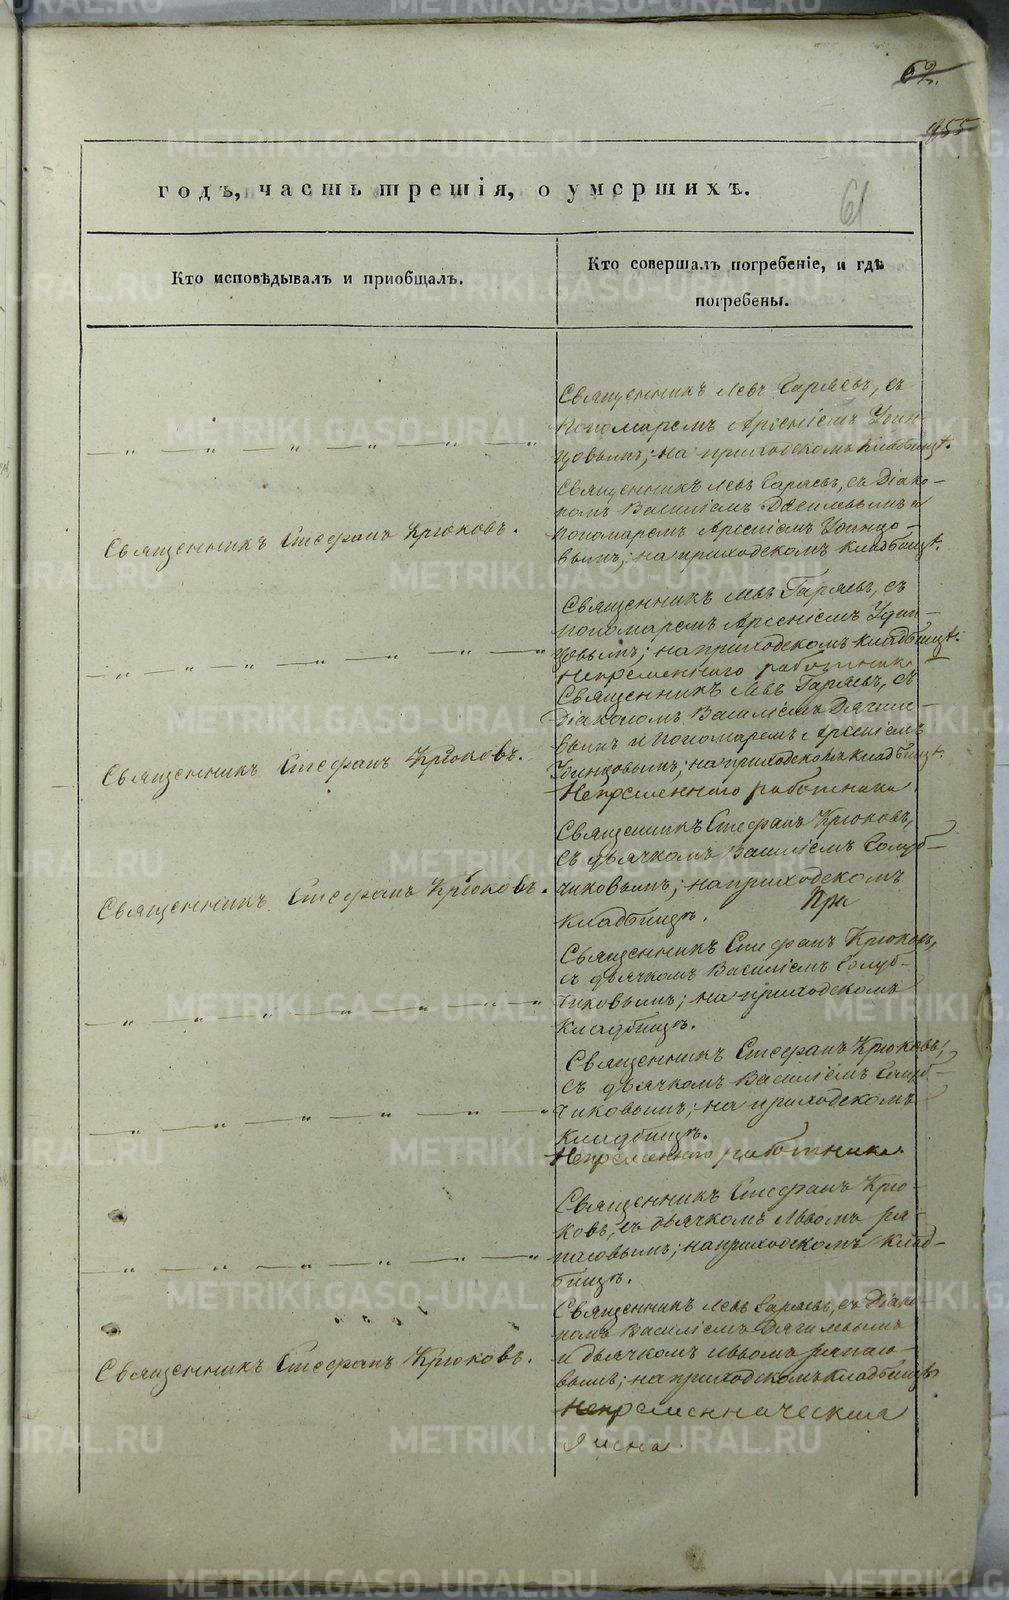 62.
955
61
годъ, часть третія, о умершихъ.
Кто исповѣдывалъ и приобщалъ.
Кто совершалъ погребеніе, и гдѣ
погребены.
Священникъ Левъ Гаряевъ, съ
пономаремъ Арсеніемъ Удин-
цовымъ; на приходскомъ кладбищѣ.
Священникъ Левъ Гаряевъ, съ Діако-
номъ Василіемъ и
пономаремъ Арсеніемъ Удинцо-
вымъ; на приходскомъ кладбищѣ.
Священникъ Стефанъ Крюковъ.
Священникъ Левъ Гаряевъ, съ
пономаремъ Арсеніемъ Удин-
цовымъ; на приходскомъ кладбищѣ.
Непременного работника
Священникъ Левъ Гаряевъ, съ
Діакономъ Василіемъ Дягиле-
вымъ и пономаремъ Арсеніемъ
Удинцовымъ; на приходскомъ кладбищѣ.
Непременного работника.
Священникъ Стефанъ Крюковъ.
Священникъ Стефанъ Крюковъ,
съ дьячкомъ Василіемъ Голуб-
чиковымъ; на приходскомъ
При
кладбищѣ.
Священникъ Стефанъ Крюковъ.
Священникъ Стефанъ Крюковъ,
съ дьячкомъ Василіемъ Голуб-
чиковымъ; на приходскомъ
кладбищѣ.
Священникъ Стефанъ Крюковъ,
съ дьячкомъ Василіемъ Голуб-
чиковымъ; на приходскомъ
кладбищѣ.
Непременного работника.
Священникъ Стефанъ Крю-
ковъ, съ дьячкомъ Львомъ
на приходскомъ клад-
бищѣ.
Священникъ Левъ Гаряевъ, съ Діако-
номъ Василіемъ Дягилевымъ
и дьячкомъ Львомъ
вымъ; на приходскомъ кладбищѣ
Священникъ Стефанъ Крюковъ.
METRIKI.GASO-URAL.RU